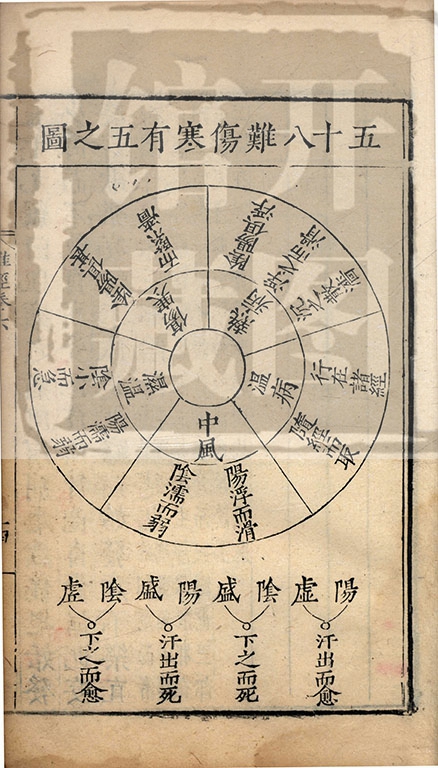 五十八難傷寒有五之圖
中風
陽浮而滑
陰濡而弱
傷寒
陰陽俱盛
而緊濇
熱病
陰陽俱浮
浮之而滑
沉之散濇
溫病
行在諸經
隨經而取
濕溫
陽濡而弱
陰小而急
陽虛
陰盛
陽盛
陰虛
汗出而愈
下之而死
汗出而死
下之而愈